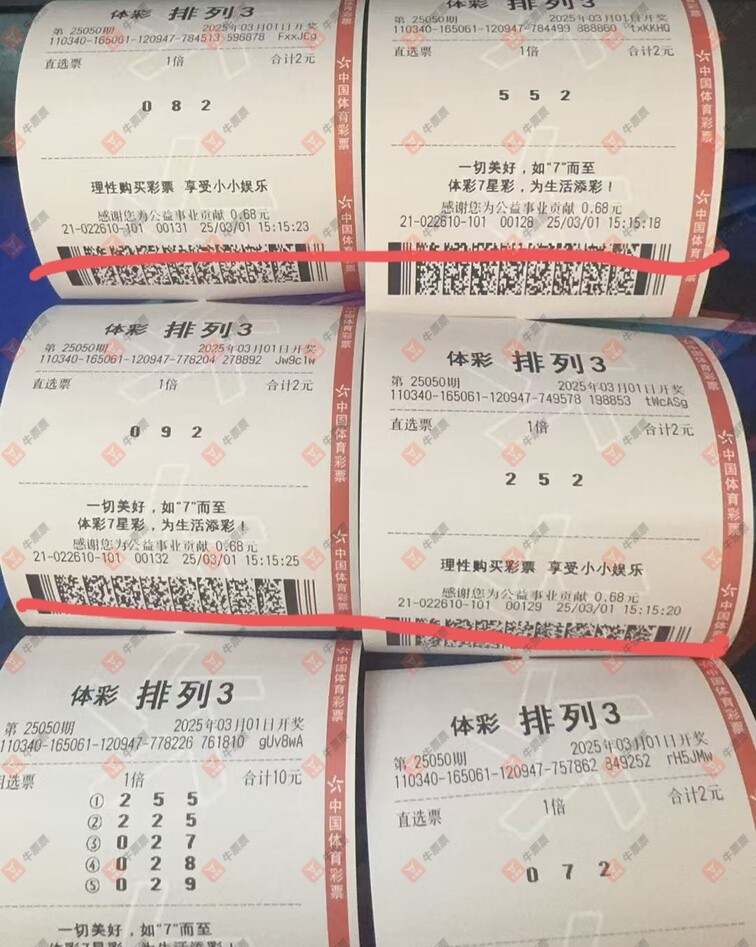 体彩 排列3
第 25050期 2025年03月01日开奖
110340-165061-120947-784513 598878 FxxJCg
直选票 1倍 合计2元
0 8 2
理性购买彩票 享受小小娱乐
感谢您为公益事业贡献 0.68元
21-022610-101 00131 25/03/01 15:15:23
中国体育彩票
中国体育彩票
体彩 排列3
第 25050期 2025年03月01日开奖
110340-165061-120947-784493 888860 txKKHQ
直选票 1倍 合计2元
5 5 2
一切美好，如“7”而至
体彩7星彩，为生活添彩！
感谢您为公益事业贡献 0.68元
21-022610-101 00128 25/03/01 15:15:18
中国体育彩票
中国体育
体彩 排列3
第 25050期 2025年03月01日开奖
110340-165061-120947-778204 278892 Jw9c1w
直选票 1倍 合计2元
0 9 2
一切美好，如“7”而至
体彩7星彩，为生活添彩！
感谢您为公益事业贡献 0.68元
21-022610-101 00132 25/03/01 15:15:25
中国体育彩票
中国体育彩票
体彩 排列3
第 25050期 2025年03月01日开奖
110340-165061-120947-749578 198853 tWcASg
直选票 1倍 合计2元
2 5 2
理性购买彩票 享受小小娱乐
感谢您为公益事业贡献 0.68元
21-022610-101 00129 25/03/01 15:15:20
中国体育彩票
体彩 排列3
第 25050期 2025年03月01日开奖
110340-165061-120947-778226 761810 gUv8wA
组选票 1倍 合计10元
① 2 5 5
② 2 2 5
③ 0 2 7
④ 0 2 8
⑤ 0 2 9
一切美好，如“7”而至
体彩7星彩，为生活添彩！
中国体育彩票
中国体育彩票
体彩 排列3
第 25050期 2025年03月01日开奖
110340-165061-120947-757862 849252 rH5JMw
直选票 1倍 合计2元
0 7 2
中国体育彩票
牛票票